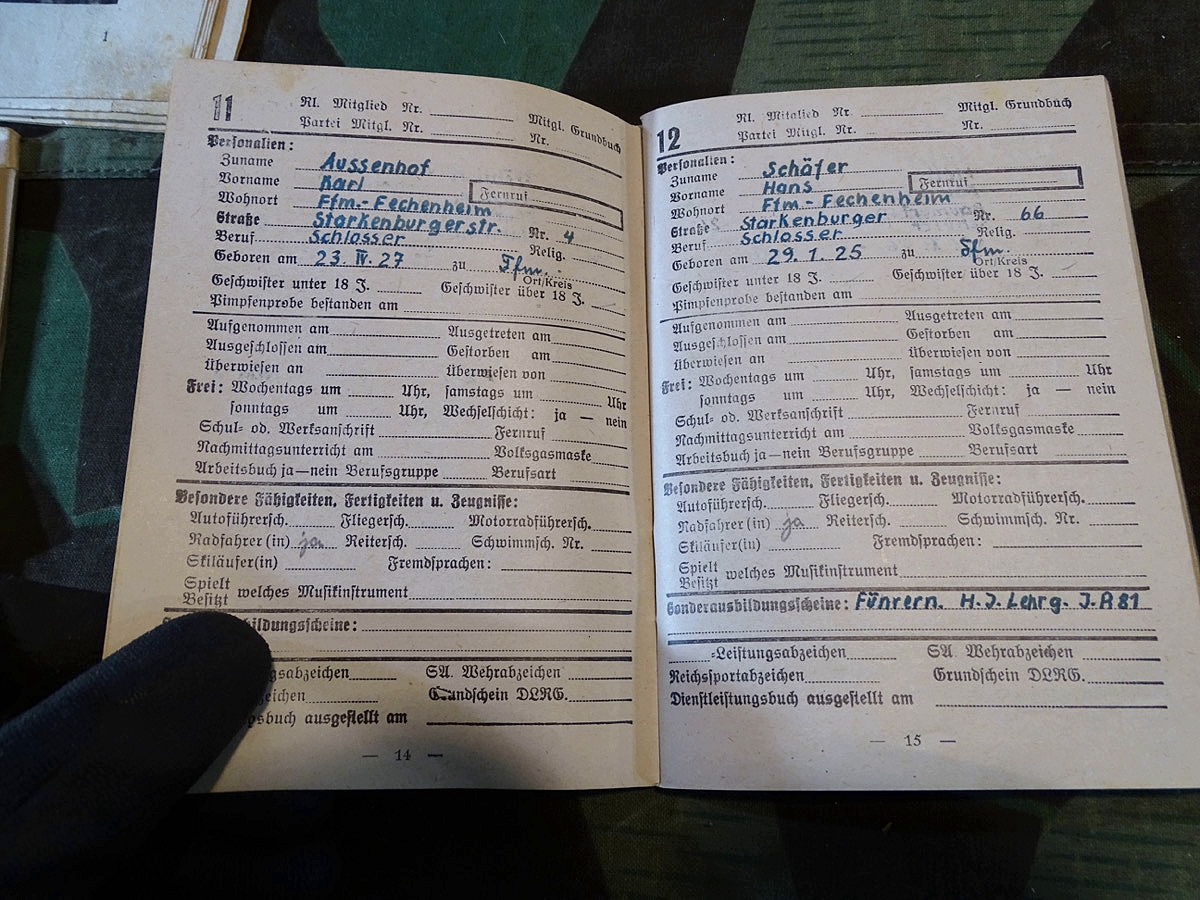 1
11
Rl. Mitglied Nr. Mitgl. Grundbuch
Partei Mitgl. Nr. Nr.
Personalien:
Zuname Aussenhof
Vorname Karl Fernruf
Wohnort Ffm.-Fechenheim
Straße Starkenburgerstr. Nr. 4
Beruf Schlosser Relig.
Geboren am 23. IV. 27 zu Ffm.
Ort/Kreis
Geschwister unter 18 J. Geschwister über 18 J.
Pimpfenprobe bestanden am
Aufgenommen am Ausgetreten am
Ausgeschlossen am Gestorben am
überwiesen an überwiesen von
Frei: Wochentags um Uhr, samstags um Uhr
sonntags um Uhr, Wechselschicht: ja — nein
Schul- od. Werksanschrift Fernruf
Nachmittagsunterricht am Volksgasmaske
Arbeitsbuch ja—nein Berufsgruppe Berufsart
Besondere Fähigkeiten, Fertigkeiten u. Zeugnisse:
Autoführersch. Fliegersch. Motorradführersch.
Radfahrer(in) ja Reitersch. Schwimmsch. Nr.
Skiläufer(in) Fremdsprachen:
Spielt
Besitzt welches Musikinstrument
bildungsscheine:
gsabzeichen SA. Wehrabzeichen
zeichen Grundschein DLRG.
sbuch ausgestellt am
— 14 —
12
Rl. Mitglied Nr. Mitgl. Grundbuch
Partei Mitgl. Nr. Nr.
Personalien:
Zuname Schäfer
Vorname Hans Fernruf
Wohnort Ffm-Fechenheim
Straße Starkenburger Nr. 66
Beruf Schlosser Relig.
Geboren am 29. 1. 25 zu Ffm.
Ort/Kreis
Geschwister unter 18 J. Geschwister über 18 J.
Pimpfenprobe bestanden am
Aufgenommen am Ausgetreten am
Ausgeschlossen am Gestorben am
überwiesen an Überwiesen von
Frei: Wochentags um Uhr, samstags um Uhr
sonntags um Uhr, Wechselschicht: ja — nein
Schul- od. Werksanschrift Fernruf
Nachmittagsunterricht am Volksgasmaske
Arbeitsbuch ja—nein Berufsgruppe Berufsart
Besondere Fähigkeiten, Fertigkeiten u. Zeugnisse:
Autoführersch. Fliegersch. Motorradführersch.
Radfahrer(in) ja Reitersch. Schwimmsch. Nr.
Skiläufer(in) Fremdsprachen:
Spielt
Besitzt welches Musikinstrument
Sonderausbildungsscheine: Führern. H.J. Lehrg. J.A 81
-Leistungsabzeichen SA. Wehrabzeichen
Reichssportabzeichen Grundschein DLRG.
Dienstleistungsbuch ausgestellt am
— 15 —